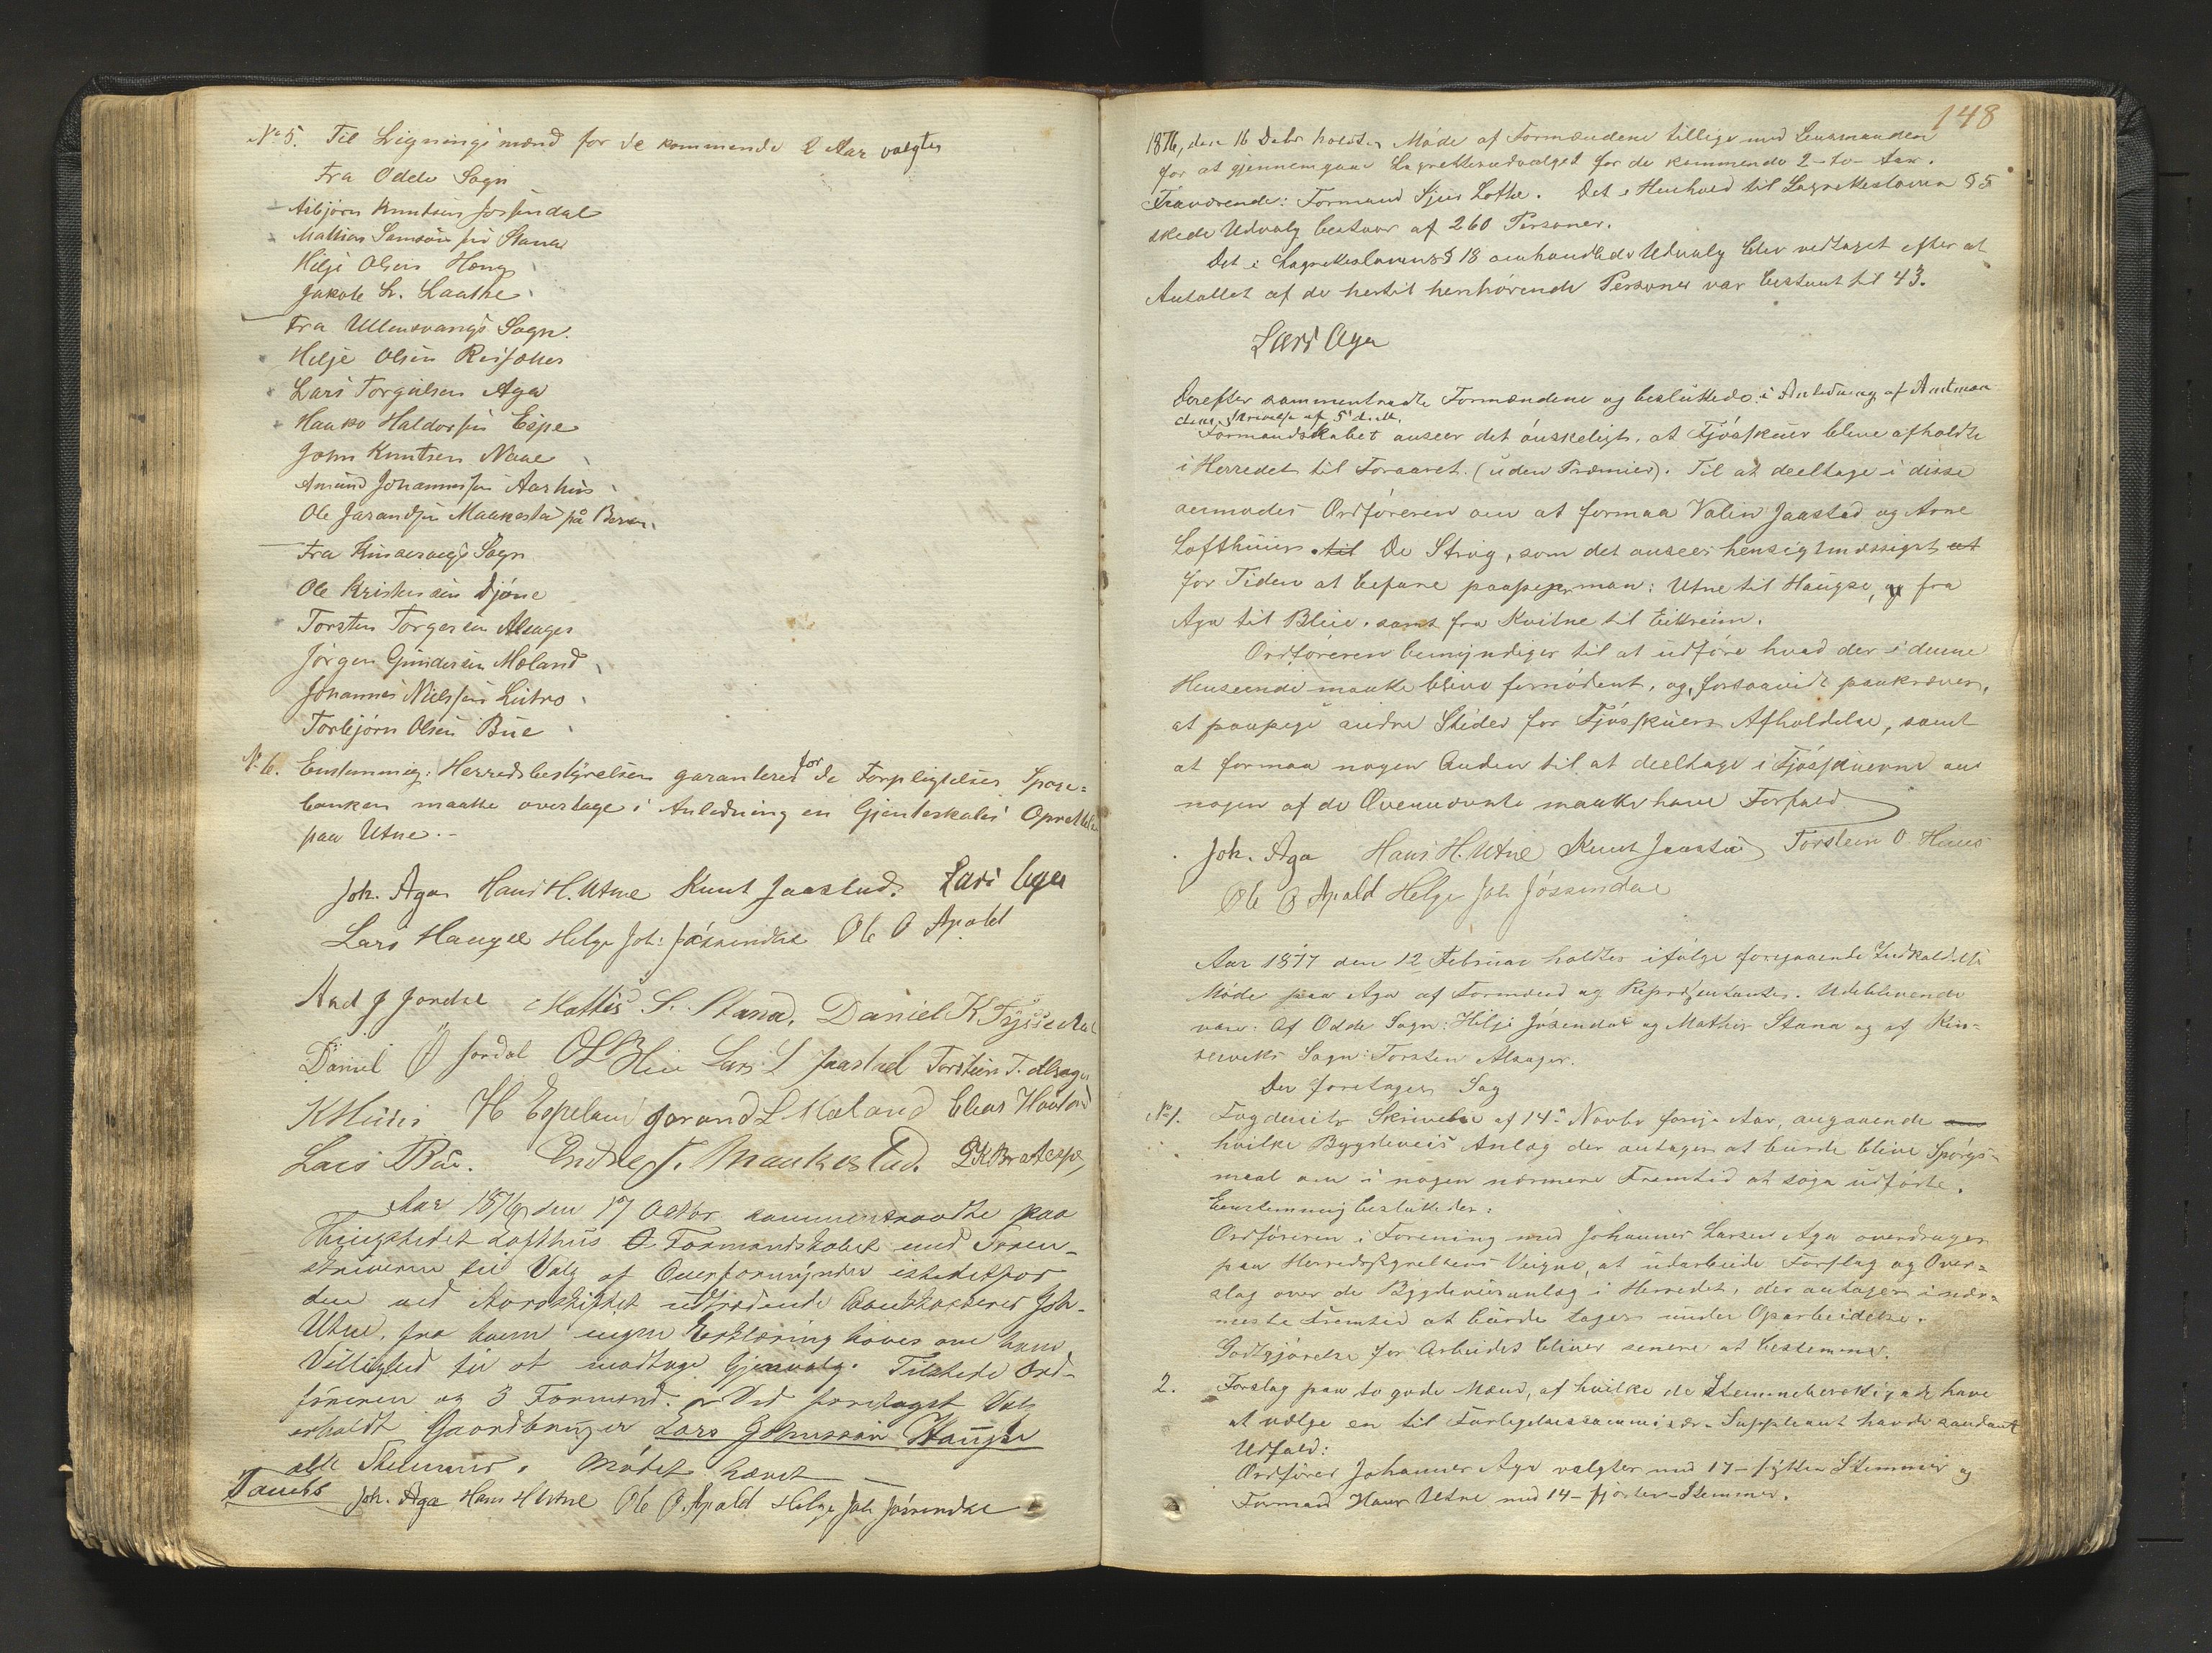 No 5. Til Ligningsmænd for de kommende 2 Aar valgtes
Fra Odde Sogn
Asbjørn Knutsen Jøssendal
Mathias Samsonsen Stana
Helje Olsen
Jakob Laathe
Fra Ullensvangs Sogn.
Helje Olsen Reisæter
Lars Torgilsen Aga
Haako Haldorsen Espe
John Knutsen Naae
Amund Johannessen Aarhus
Ole Jarandsen Maakestad på
Fra Kinserviks Sogn
Ole Kristensen Djøne
Torsten Torgersen Alsager
Jørgen Gundersen Mæland
Johannes Nielssen Lutro
Torbjørn Olsen Büe
No 6. Enstemmig: Herredsbestyrelsen garanterer for de Forpligtelser Spare-
banken maatte overtage i Anledning en Gjenteskoles Oprettelse
paa Utne.-
Joh. Aga Hans H. Utne Knut Jaastad. Lars Aga
Lars Haugse Helge Joh: Jøssendal Ole O Apold
Aad J Jordal Mattis S. Stana. Daniel K Tyssedal
Daniel Jordal OLBleie Lars L Jaastad Torstein T. Alsager
KHuus H Espeland Jorand L Mæland Elias Hovland
Lars Büe. Endre J. Maakestad.
Aar 1876 den 17 Octbr sammentraadte paa
Thingstedet Lofthus Formandskabet med Soren-
skriveren til Valg af Overformynder istedetfor
den ved Aarsskiftet udtrædende Joh.
Utne, fra hvem ingen Erklæring haves om hans
Villighed til at modtage Gjenvalg. Tilstede Ord-
føreren og 3 Formænd. Ved foretaget Valg
erholdt Gaardbruger Lars Johnssøn Haugse
alle Stemmer. Mødet hævet
Joh. Aga Hans H Utne Ole O. Apold Helge Joh Jøssendal
148
1876, den 16 Debr holdtes Møde af Formændene tillige med Lensmanden
for at gjennemgaa Lagretteudvalget for de kommende 2-to-Aar.
Fraværende: Formand Sjur Lothe. Det i Henhold til Lagretteloven § 5
skede Udvalg bestaar af 260 Personer.
Det i Lagretteslovens § 18 omhandlede Udvalg blev vedtaget efter at
Antallet af de hertil henhørende Personer var bestemt til 43.
Lars Aga
Derefter sammentraadte Formændene og besluttede i Anledning af Amtman
dens Skrivelse af 5te ds.
Formandskabet anseer det ønskeligt, at Fjøsskuer blive afholdte
i Herredet til Foraaret (uden Præmier). Til at deeltage i disse
anmodes Ordføreren om at formaa Valin Jaastad og Arne
Lofthuus. til De Strøg, som det ansees hensigtsmæssigst at
for Tiden at befare paapeger man: Utne til Haugse, og fra
Aga til Bleie. samt fra Kvitne til Eitreim.
Ordføreren bemyndiges til at udføre hvad der i denne
Henseende maatte blive fornødent, og, forsaavidt paakræves,
at paapege andre Steder for Fjøsskuers Afholdelse, samt
at formaa nogen Anden til at deeltage i Fjøsskuerne om
nogen af de Ovennævnte maatte have Forfald
Joh. Aga Hans H. Utne Knut Jaastad Torstein O. Huus
Ole O Apald Helge Joh Jøssendal
Aar 1877 den 12 Februar holdtes ifølge foregaaende Indkaldelse
Møde paa Aga af Formænd og Repræsentanter. Udeblivende
vare: Af Odde Sogn: Helje Jøsendal og Mathis Stana og af Kin-
serviks Sogn: Torsten Alsager.
Der foretoges Sag
No 1. Fogderiets Skrivelse af 14de Novbr forrige Aar, angaaende
hvilke Bygdeveis Anlæg der antages at burde blive Spørgs-
maal om i nogen nærmere Fremtid at søge udførte.
Eenstemmig besluttedes:
Ordføreren i Forening med Johannes Larsen Aga overdrages
paa Herredsstyrelsens Vegne, at udarbeide Forslag og Over-
slag over de Bygdeveisanlæg i Herredet, der antages i nær-
meste Fremtid at burde tages under Oparbeidelse.
Godtgjørelse for Arbeidet bliver senere at bestemme.
2. Forslag paa to gode Mænd, af hvilke de Stemmeberettigede have
at vælge en til Forligelseskommissær-Suppleant havde saadant
Udfald:
Ordfører Johannes Aga valgtes med 17- sytten Stemmer og
Formand Hans Utne med 14- fjorten-Stemmer.